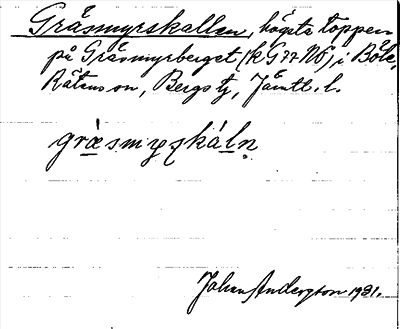 Gräsmyrskallen, högsta toppen
på Gräsmyrberget (k G 77 NV) i Böle,
Rätans sn, Bergs tg, Jämtl. l.
græsmyṛskáln
Johan Anderzson 1931.